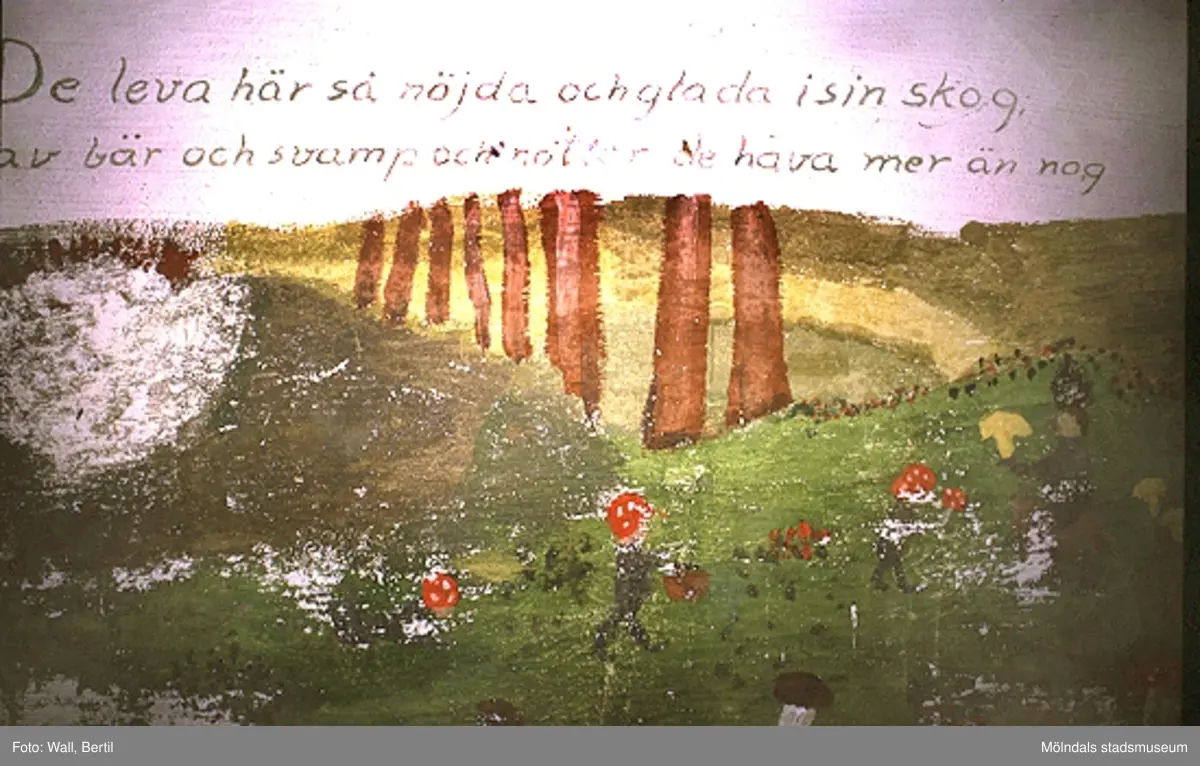 De leva här så nöjda och glada i sin skog,
av bär och svamp och nötter de hava mer än nog
Foto: Wall, Bertil
Mölndals stadsmuseum